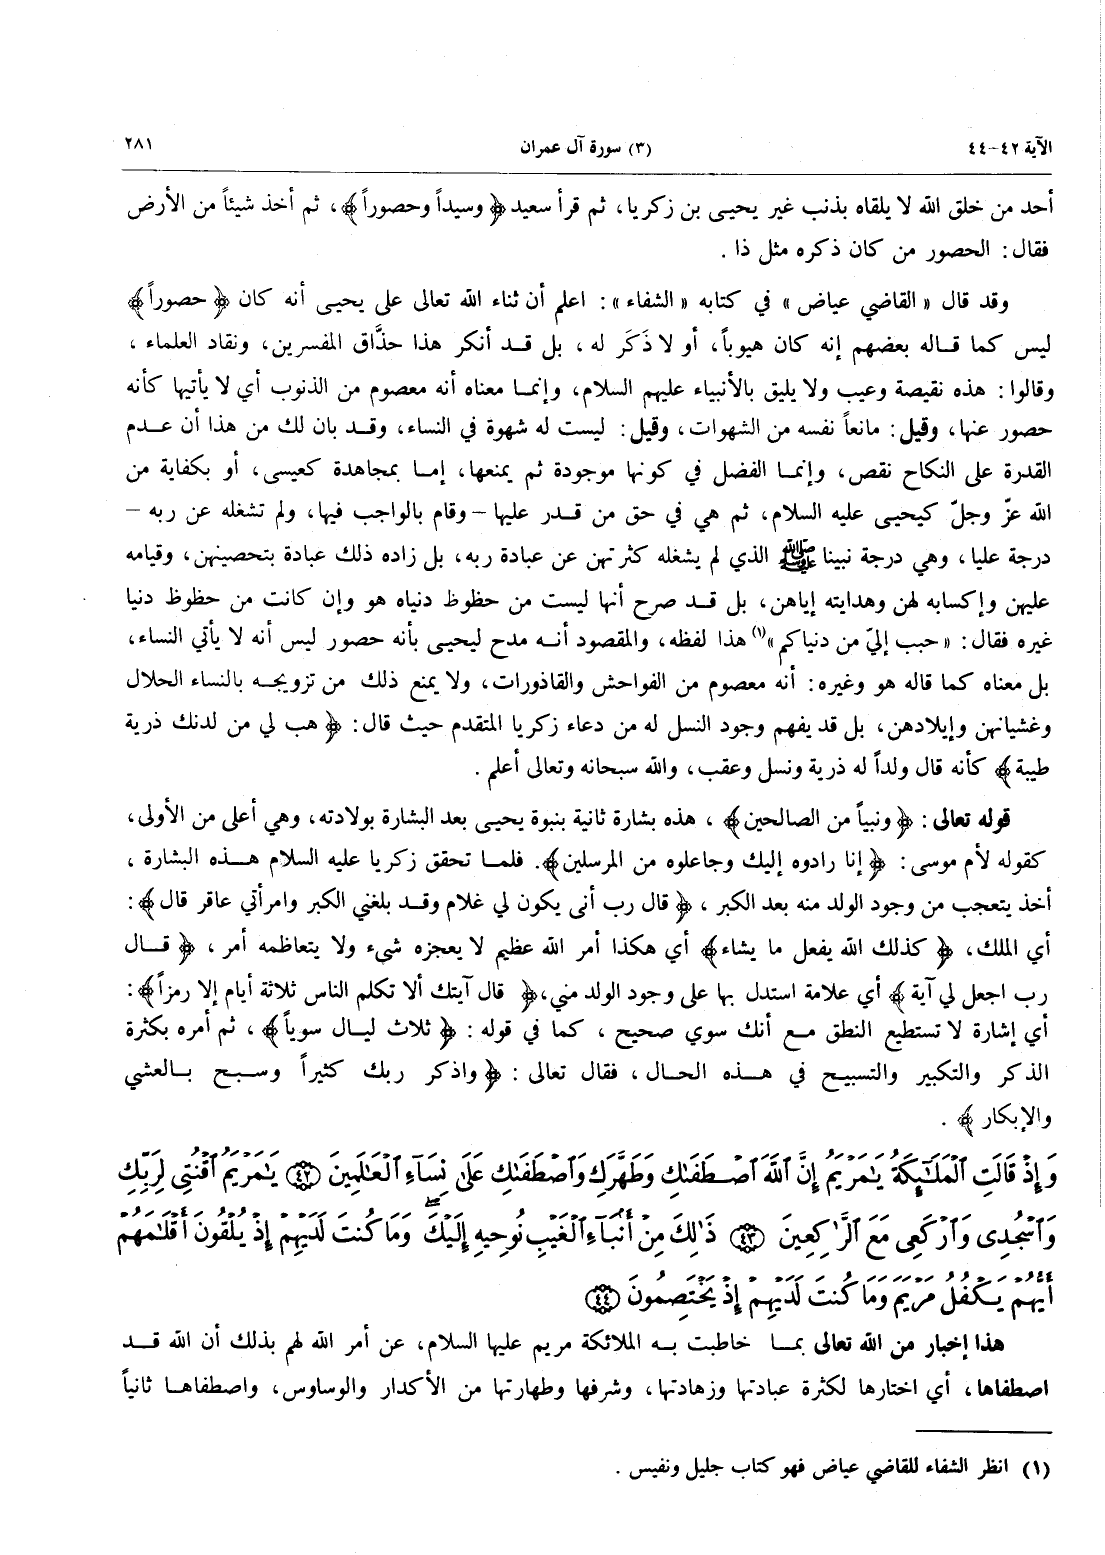 الآية ٤٢-٤٤ (٣) سورة آل عمران ٢٨١
أحد من خلق الله لا يلقاه بذنب غير يحيى بن زكريا، ثم قرأ سعيد ﴿وسيداً وحصوراً﴾، ثم أخذ شيئاً من الأرض
فقال: الحصور من كان ذكره مثل ذا .
وقد قال « القاضي عياض » في كتابه « الشفاء »: اعلم أن ثناء الله تعالى على يحيى أنه كان ﴿ حصوراً ﴾
ليس كما قاله بعضهم إنه كان هيوباً، أو لا ذَكَر له ، بل قد أنكر هذا حذَّاق المفسرين، ونقاد العلماء ،
وقالوا: هذه نقيصة وعيب ولا يليق بالأنبياء عليهم السلام، وإنما معناه أنه معصوم من الذنوب أي لا يأتيها كأنه
حصور عنها، وقيل: مانعاً نفسه من الشهوات، وقيل: ليست له شهوة في النساء، وقد بان لك من هذا أن عدم
القدرة على النكاح نقص، وإنما الفضل في كونها موجودة ثم يمنعها، إما بمجاهدة كعيسى، أو بكفاية من
الله عزّ وجلّ كيحيى عليه السلام، ثم هي في حق من قدر عليها – وقام بالواجب فيها، ولم تشغله عن ربه –
درجة عليا، وهي درجة نبينا ﷺ الذي لم يشغله كثرتهن عن عبادة ربه، بل زاده ذلك عبادة بتحصينهن، وقيامه
عليهن وإكسابه لهن وهدايته إياهن، بل قد صرح أنها ليست من حظوظ دنياه هو وإن كانت من حظوظ دنيا
غيره فقال: « حبب إليّ من دنياكم »(١) هذا لفظه، والمقصود أنه مدح ليحيى بأنه حصور ليس أنه لا يأتي النساء،
بل معناه كما قاله هو وغيره: أنه معصوم من الفواحش والقاذورات، ولا يمنع ذلك من تزويجه بالنساء الحلال
وغشيانهن وإيلادهن، بل قد يفهم وجود النسل له من دعاء زكريا المتقدم حيث قال: ﴿ هب لي من لدنك ذرية
طيبة﴾ كأنه قال ولداً له ذرية ونسل وعقب، والله سبحانه وتعالى أعلم .
قوله تعالى: ﴿ونبياً من الصالحين﴾ ، هذه بشارة ثانية بنبوة يحيى بعد البشارة بولادته، وهي أعلى من الأولى،
كقوله لأم موسى: ﴿إنا رادوه إليك وجاعلوه من المرسلين﴾. فلما تحقق زكريا عليه السلام هذه البشارة ،
أخذ يتعجب من وجود الولد منه بعد الكبر ، ﴿ قال رب أنى يكون لي غلام وقد بلغني الكبر وامرأتي عاقر قال﴾:
أي الملك، ﴿ كذلك الله يفعل ما يشاء﴾ أي هكذا أمر الله عظيم لا يعجزه شيء ولا يتعاظمه أمر ، ﴿ قال
رب اجعل لي آية ﴾ أي علامة استدل بها على وجود الولد مني، ﴿ قال آيتك ألا تكلم الناس ثلاثة أيام إلا رمزاً﴾:
أي إشارة لا تستطيع النطق مع أنك سوي صحيح ، كما في قوله : ﴿ ثلاث ليال سوياً ﴾، ثم أمره بكثرة
الذكر والتكبير والتسبيح في هذه الحال ، فقال تعالى : ﴿ واذكر ربك كثيراً وسبح بالعشي
والإبكار ﴾ .
وَإِذْ قَالَتِ ٱلْمَلَٰٓئِكَةُ يَٰمَرْيَمُ إِنَّ ٱللَّهَ ٱصْطَفَىٰكِ وَطَهَّرَكِ وَٱصْطَفَىٰكِ عَلَىٰ نِسَآءِ ٱلْعَٰلَمِينَ ﴿٤٢﴾ يَٰمَرْيَمُ ٱقْنُتِى لِرَبِّكِ
وَٱسْجُدِى وَٱرْكَعِى مَعَ ٱلرَّٰكِعِينَ ﴿٤٣﴾ ذَٰلِكَ مِنْ أَنۢبَآءِ ٱلْغَيْبِ نُوحِيهِ إِلَيْكَ ۚ وَمَا كُنتَ لَدَيْهِمْ إِذْ يُلْقُونَ أَقْلَٰمَهُمْ
أَيُّهُمْ يَكْفُلُ مَرْيَمَ وَمَا كُنتَ لَدَيْهِمْ إِذْ يَخْتَصِمُونَ ﴿٤٤﴾
هذا إخبار من الله تعالى بما خاطبت به الملائكة مريم عليها السلام، عن أمر الله لهم بذلك أن الله قد
اصطفاها، أي اختارها لكثرة عبادتها وزهادتها، وشرفها وطهارتها من الأكدار والوساوس، واصطفاها ثانياً
(١) انظر الشفاء للقاضي عياض فهو كتاب جليل ونفيس .